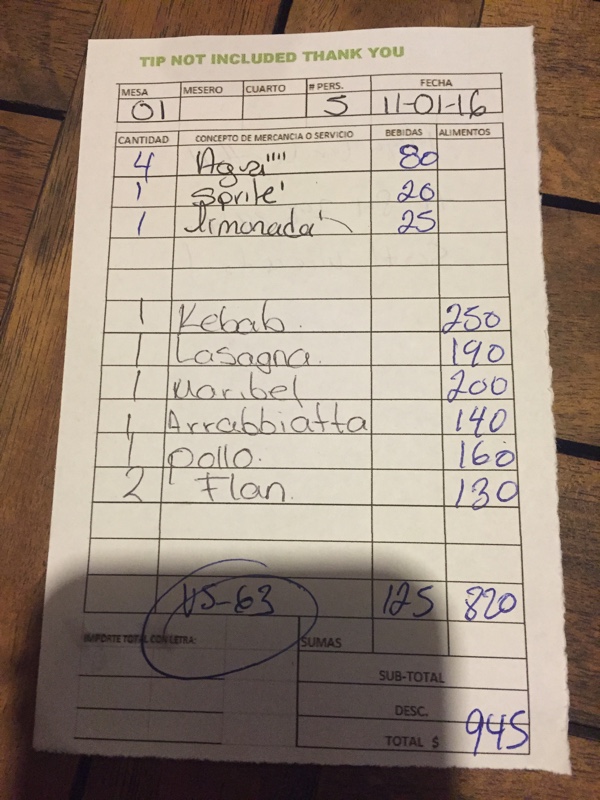 TIP NOT INCLUDED THANK YOU
MESA MESERO CUARTO # PERS. FECHA
01 5 11-01-16
CANTIDAD CONCEPTO DE MERCANCIA O SERVICIO BEBIDAS ALIMENTOS
4 Agua"" 80
1 Sprite' 20
1 limonada' 25
1 Kebab. 250
1 Lasagna. 190
1 Maribel 200
1 Arrabbiatta 140
1 pollo. 160
2 Flan. 130
US-63 125 820
IMPORTE TOTAL CON LETRA: SUMAS
SUB-TOTAL
DESC.
TOTAL $ 945